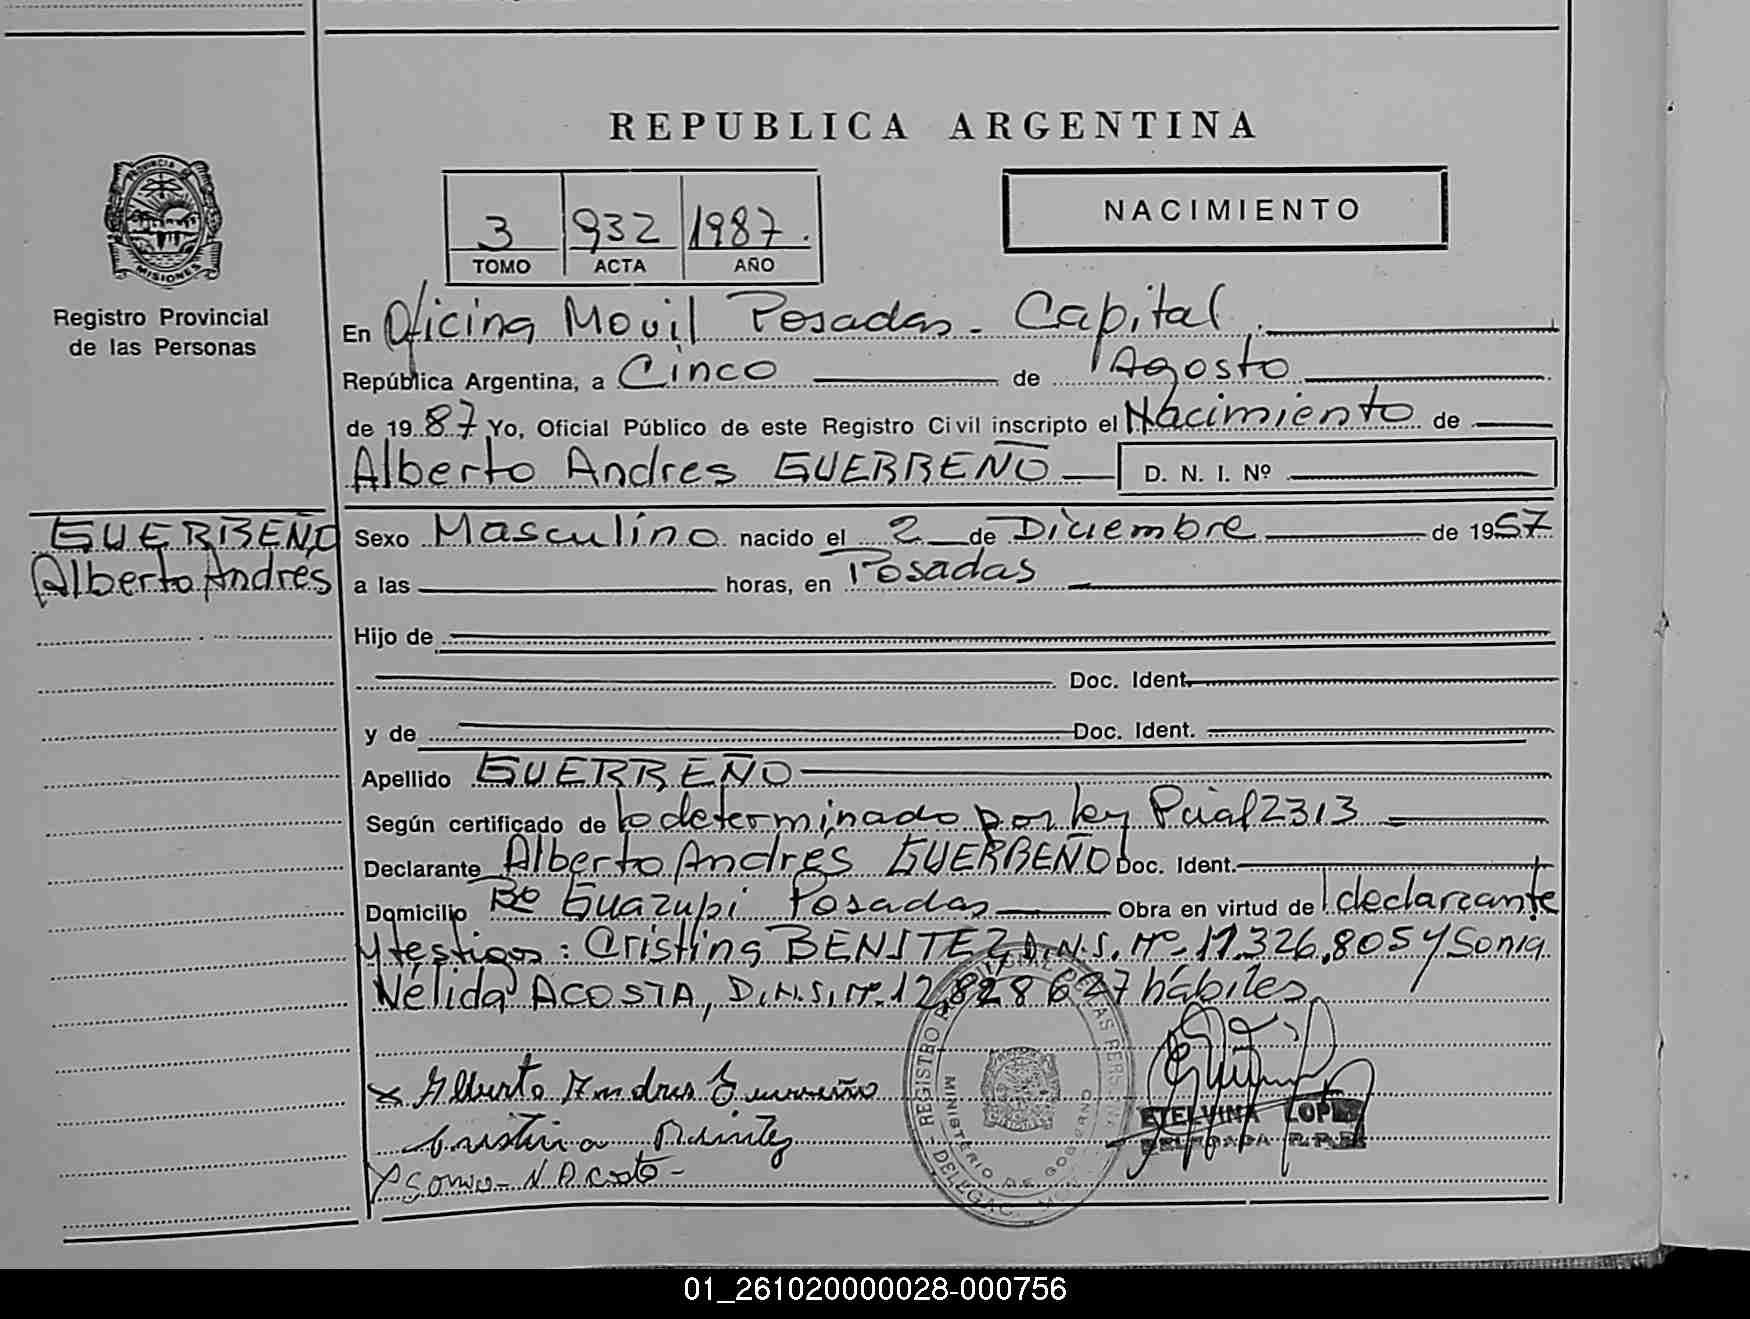 REPUBLICA ARGENTINA
PROVINCIA
MISIONES
Registro Provincial
de las Personas
3 932 1987.
TOMO ACTA AÑO
NACIMIENTO
En Oficina Movil Posadas - Capital
República Argentina, a Cinco de Agosto
de 1987 Yo, Oficial Público de este Registro Civil inscripto el Nacimiento de
Alberto Andres GUERREÑO D. N. I. Nº
GUERREÑO
Alberto Andrés
Sexo Masculino nacido el 2 de Diciembre de 1957
a las horas, en Posadas
Hijo de
Doc. Ident.
y de Doc. Ident.
Apellido GUERREÑO
Según certificado de lo determinado por ley Pcial 2313
Declarante Alberto Andrés GUERREÑO Doc. Ident.
Domicilio Bº Guazupi Posadas Obra en virtud de declarante
y testigos: Cristina BENITEZ D.N.I. Nº 17.326.805 y Sonia
Nélida ACOSTA, D.N.I. Nº 12.828627 hábiles
Alberto Andres Guerreño
Cristina Benitez
Sonia N Acosta -
REGISTRO PROVINCIAL DE LAS PERSONAS
MINISTERIO DE GOBIERNO
ETELVINA LOPEZ
DELEGADA R.P.P.
01_261020000028-000756